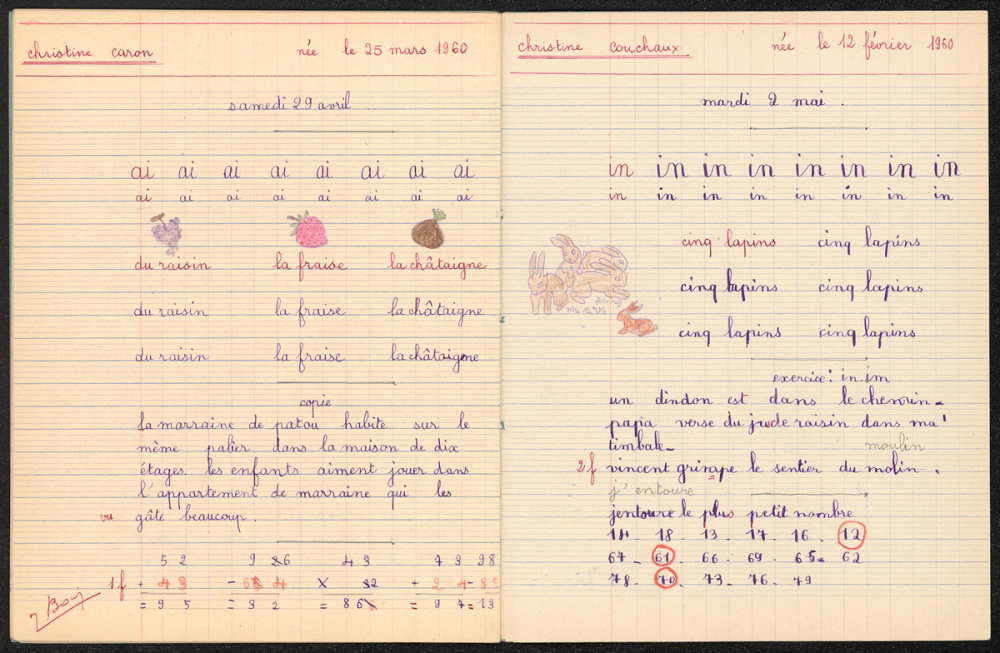 christine caron née le 25 mars 1960
samedi 29 avril
ai ai ai ai ai ai ai ai
ai ai ai ai ai ai ai ai
du raisin la fraise la châtaigne
du raisin la fraise la châtaigne
du raisin la fraise la châtaigne
copie
la marraine de patou habite sur le
même palier dans la maison de dix
étages. les enfants aiment jouer dans
l'appartement de marraine qui les
vu gâte beaucoup.
5 2 9 6 4 3 7 3 98
1 f + 4 3 - 6 4 X 2 + 2 4 - 85
= 9 5 = 3 2 = 8 6 = 9 7 = 13
Bon
christine couchaux née le 12 février 1960
mardi 2 mai.
in in in in in in in in
in in in in in in in in
cinq lapins cinq lapins
cinq lapins cinq lapins
cinq lapins cinq lapins
exercice: in. im
un dindon est dans le chemin-
papa verse du jude raisin dans ma
timbale- moulin
2 f vincent grimpe le sentier du molin.
j'entoure
jentoure le plus petit nombre
14- 18- 13- 17- 16- 12
67- 61- 66- 69- 65- 62
78- 70- 73- 76- 79